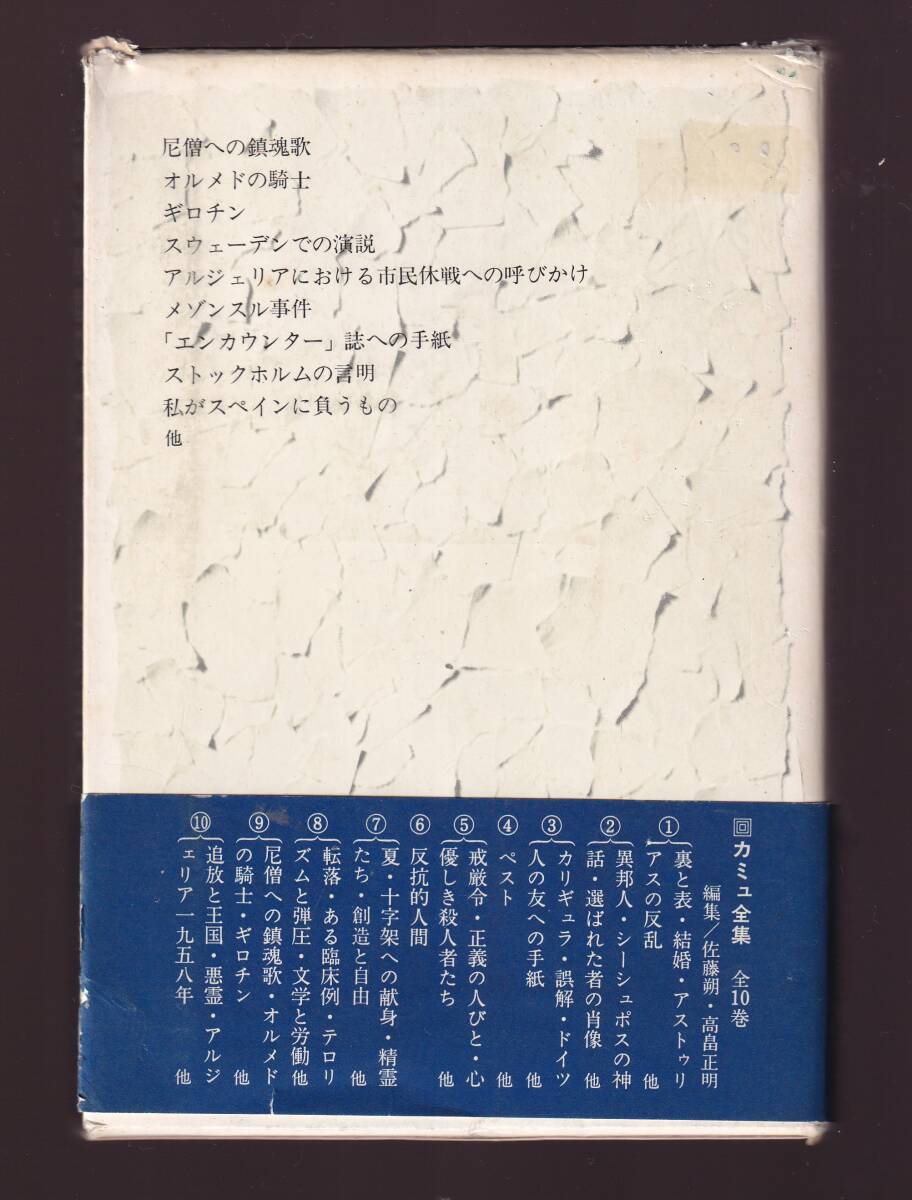 尼僧への鎮魂歌
オルメドの騎士
ギロチン
スウェーデンでの演説
アルジェリアにおける市民休戦への呼びかけ
メゾンスル事件
「エンカウンター」誌への手紙
ストックホルムの言明
私がスペインに負うもの
他
回 カミュ全集 全10巻
編集/佐藤朔・高畠正明
①
裏と表・結婚・アストゥリ
アスの反乱 他
②
異邦人・シーシュポスの神
話・選ばれた者の肖像 他
③
カリギュラ・誤解・ドイツ
人の友への手紙 他
④
ペスト 他
⑤
戒厳令・正義の人びと・心
優しき殺人者たち 他
⑥
反抗的人間
⑦
夏・十字架への献身・精霊
たち・創造と自由 他
⑧
転落・ある臨床例・テロリ
ズムと弾圧・文学と労働 他
⑨
尼僧への鎮魂歌・オルメド
の騎士・ギロチン 他
⑩
追放と王国・悪霊・アルジ
ェリア一九五八年 他